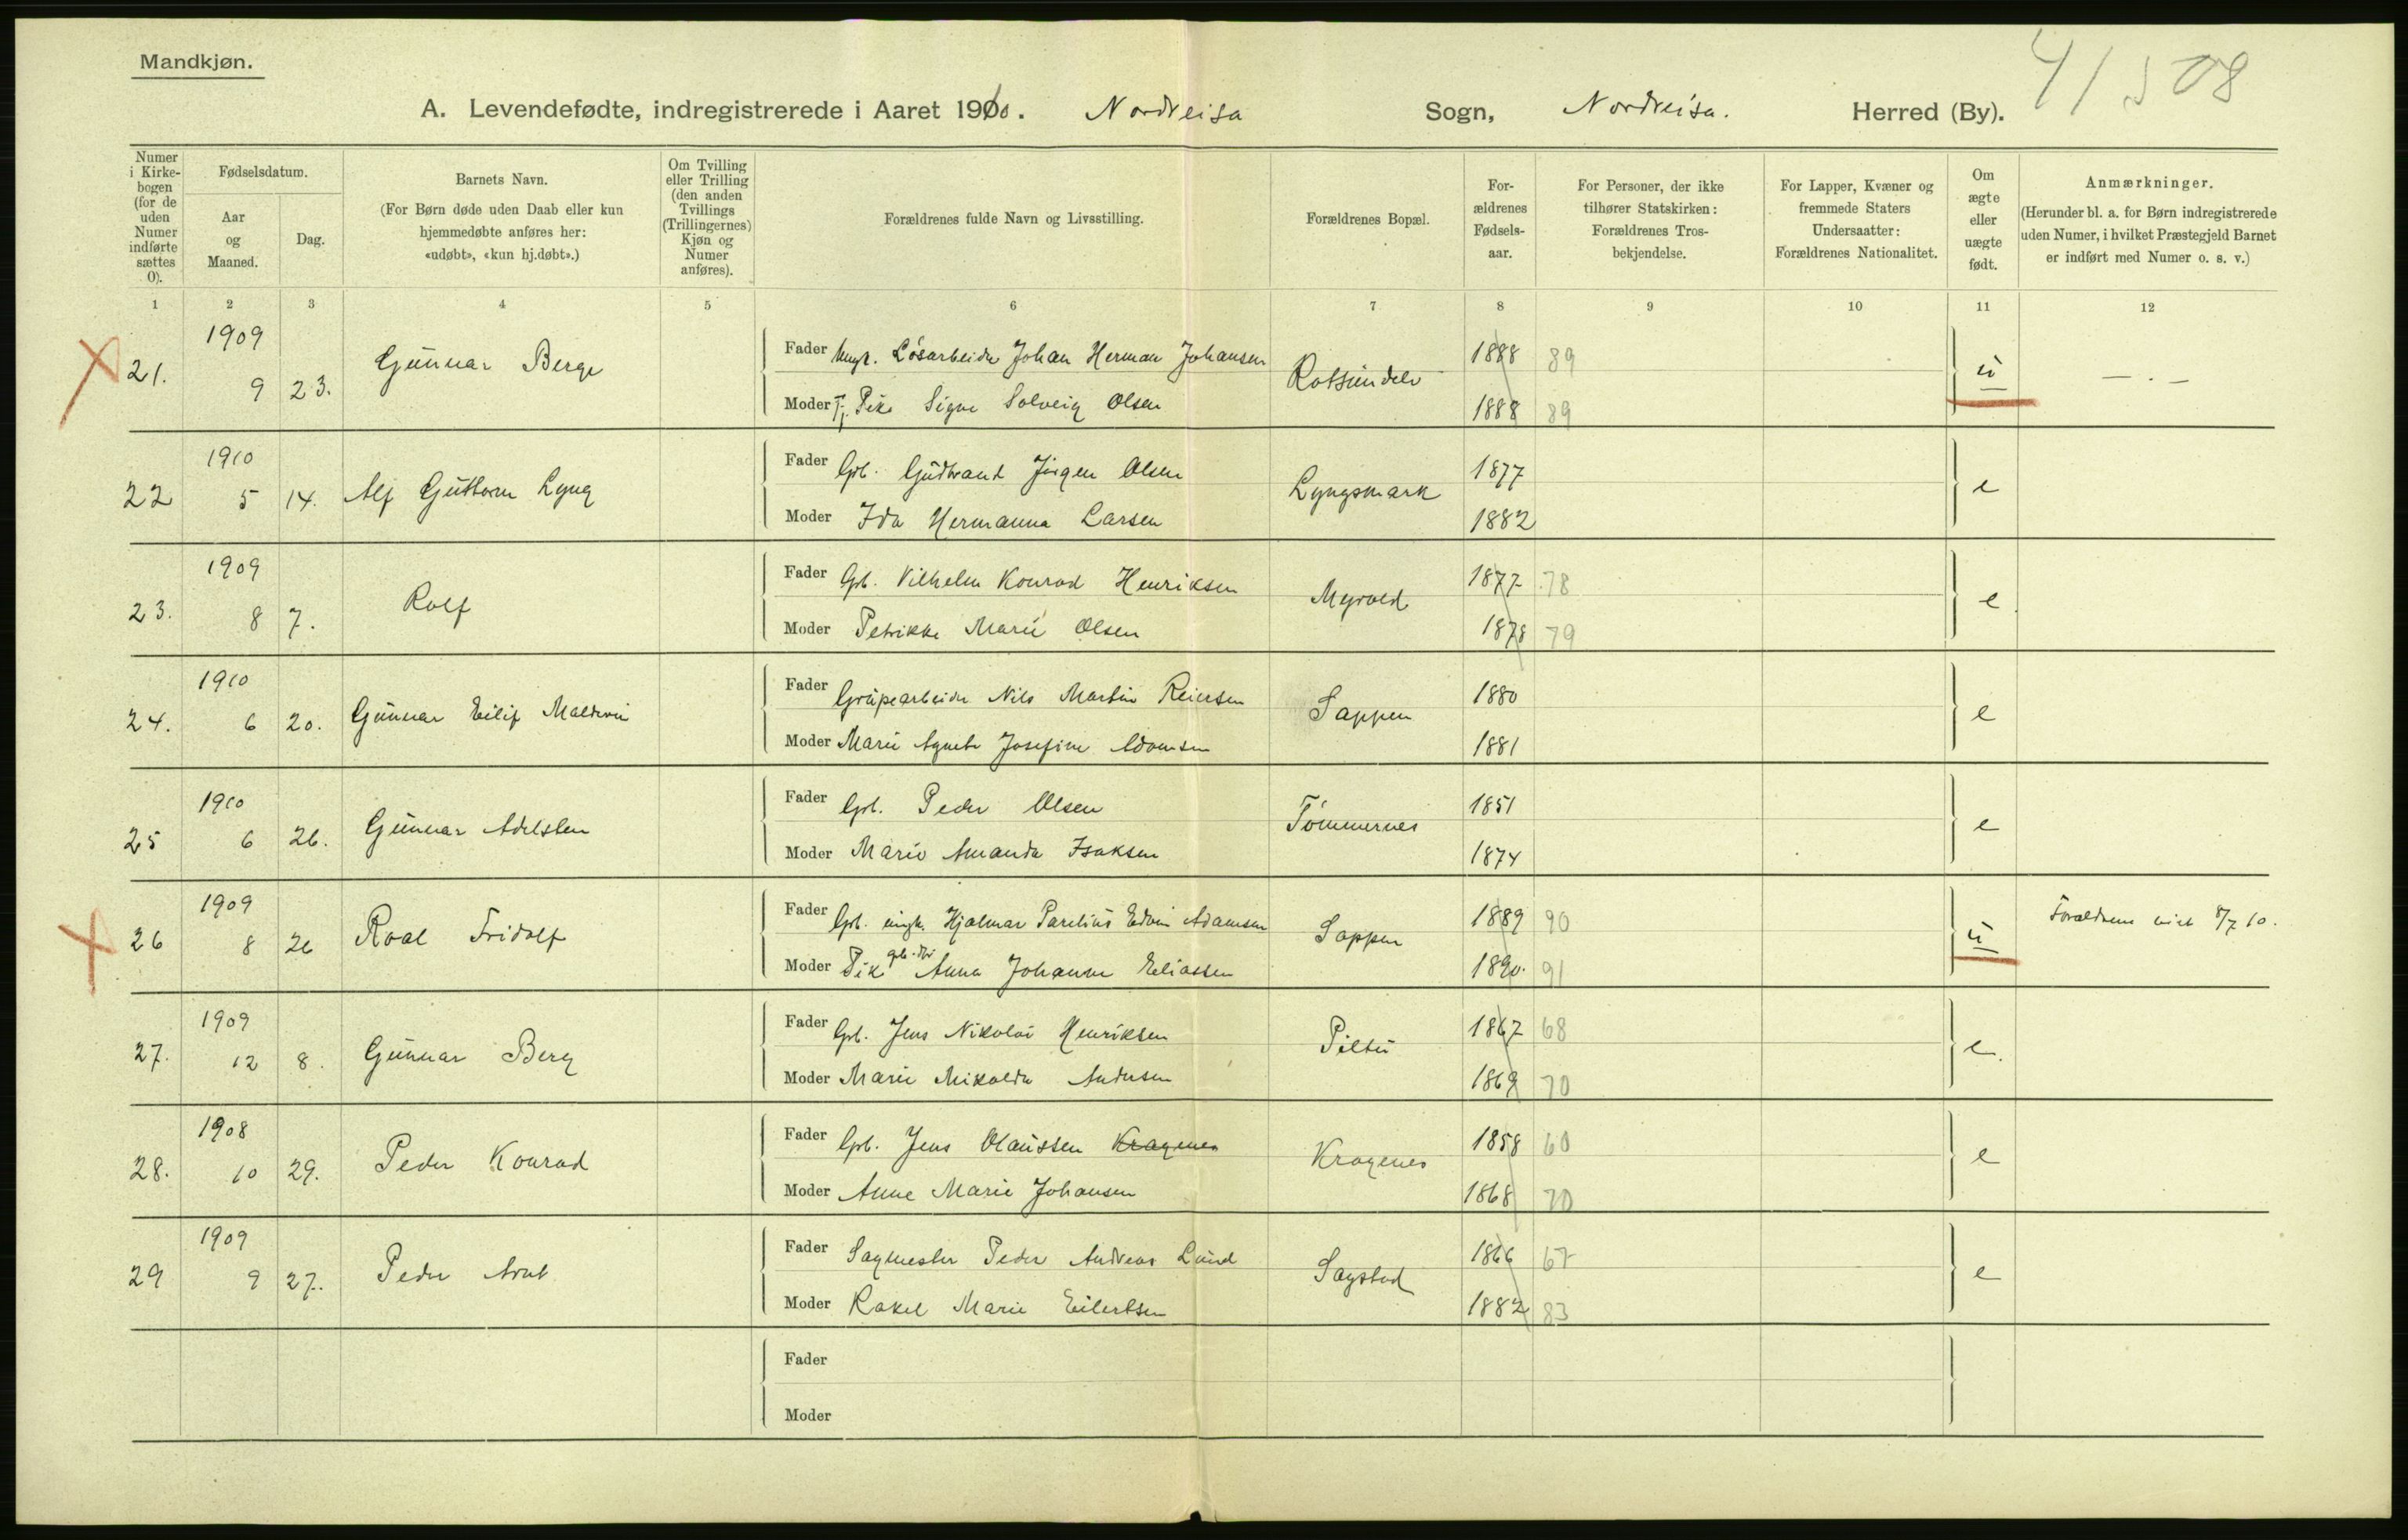 Mandkjøn.
41508
A. Levendefødte, indregistrerede i Aaret 1910. Nordreisa Sogn, Nordreisa. Herred (By).
Numer i Kirkebogen (for de uden Numer indførte sættes 0).
Fødselsdatum.
Aar og Maaned.
Dag.
Barnets Navn.
(For Børn døde uden Daab eller kun hjemmedøbte anføres her: «udøbt», «kun hj.døbt».)
Om Tvilling eller Trilling (den anden Tvillings (Trillingernes) Kjøn og Numer anføres).
Forældrenes fulde Navn og Livsstilling.
Forældrenes Bopæl.
Forældrenes Fødselsaar.
For Personer, der ikke tilhører Statskirken: Forældrenes Trosbekjendelse.
For Lapper, Kvæner og fremmede Staters Undersaatter: Forældrenes Nationalitet.
Om ægte eller uægte født.
Anmærkninger.
(Herunder bl. a. for Børn indregistrerede uden Numer, i hvilket Præstegjeld Barnet er indført med Numer o. s. v.)
1 2 3 4 5 6 7 8 9 10 11 12
1909
21. 9 23. Gunnar Berge
Fader Ungk. Løsarbeider Johan Herman Johansen 1888 89
Rotsundelv u — . —
Moder Tj. Pike Signe Solveig Olsen 1888 89
1910
22 5 14. Alf Guttorm Lyng
Fader Gbr. Gudbrand Jørgen Olsen 1877
Lyngsmark e
Moder Ida Hermanna Larsen 1882
1909
23. 8 7. Rolf
Fader Gbr. Vilhelm Konrad Henriksen 1877 78
Myrvold e
Moder Petrikke Marie Olsen 1878 79
1910
24. 6 20. Gunnar Eilif
Fader Grubearbeider Nils Martin Reiersen 1880
Sappen e
Moder Marie Agnete Josefine Adamsen 1881
1910
25 6 26. Gunnar Adelsten
Fader Gbr. Peder Olsen 1851
Tømmernes e
Moder Marie Amanda Isaksen 1874
1909
26 8 26 Roal Fridolf
Fader Gbr. ungk. Hjalmar Parelius Edvin Adamsen 1889 90
Sappen u Forældrene viet 8/7 10.
Moder Pike Anna Johanne Eliassen 1890. 91
1909
27. 12 8. Gunnar Berg
Fader Gbr. Jens Nikolai Henriksen 1867 68
e.
Moder Marie Mikalda Andersen 1869 70
1908
28. 10 29. Peder Konrad
Fader Gbr. Jens Olaussen Kragenes 1858 60
Kragenes e
Moder Anne Marie Johansen 1868 70
1909
29 9 27. Peder Arnt
Fader Sagmester Peder Andreas Lund 1866 67
Sagstad e
Moder Rakel Marie Eilertsen 1882 83
Fader
Moder